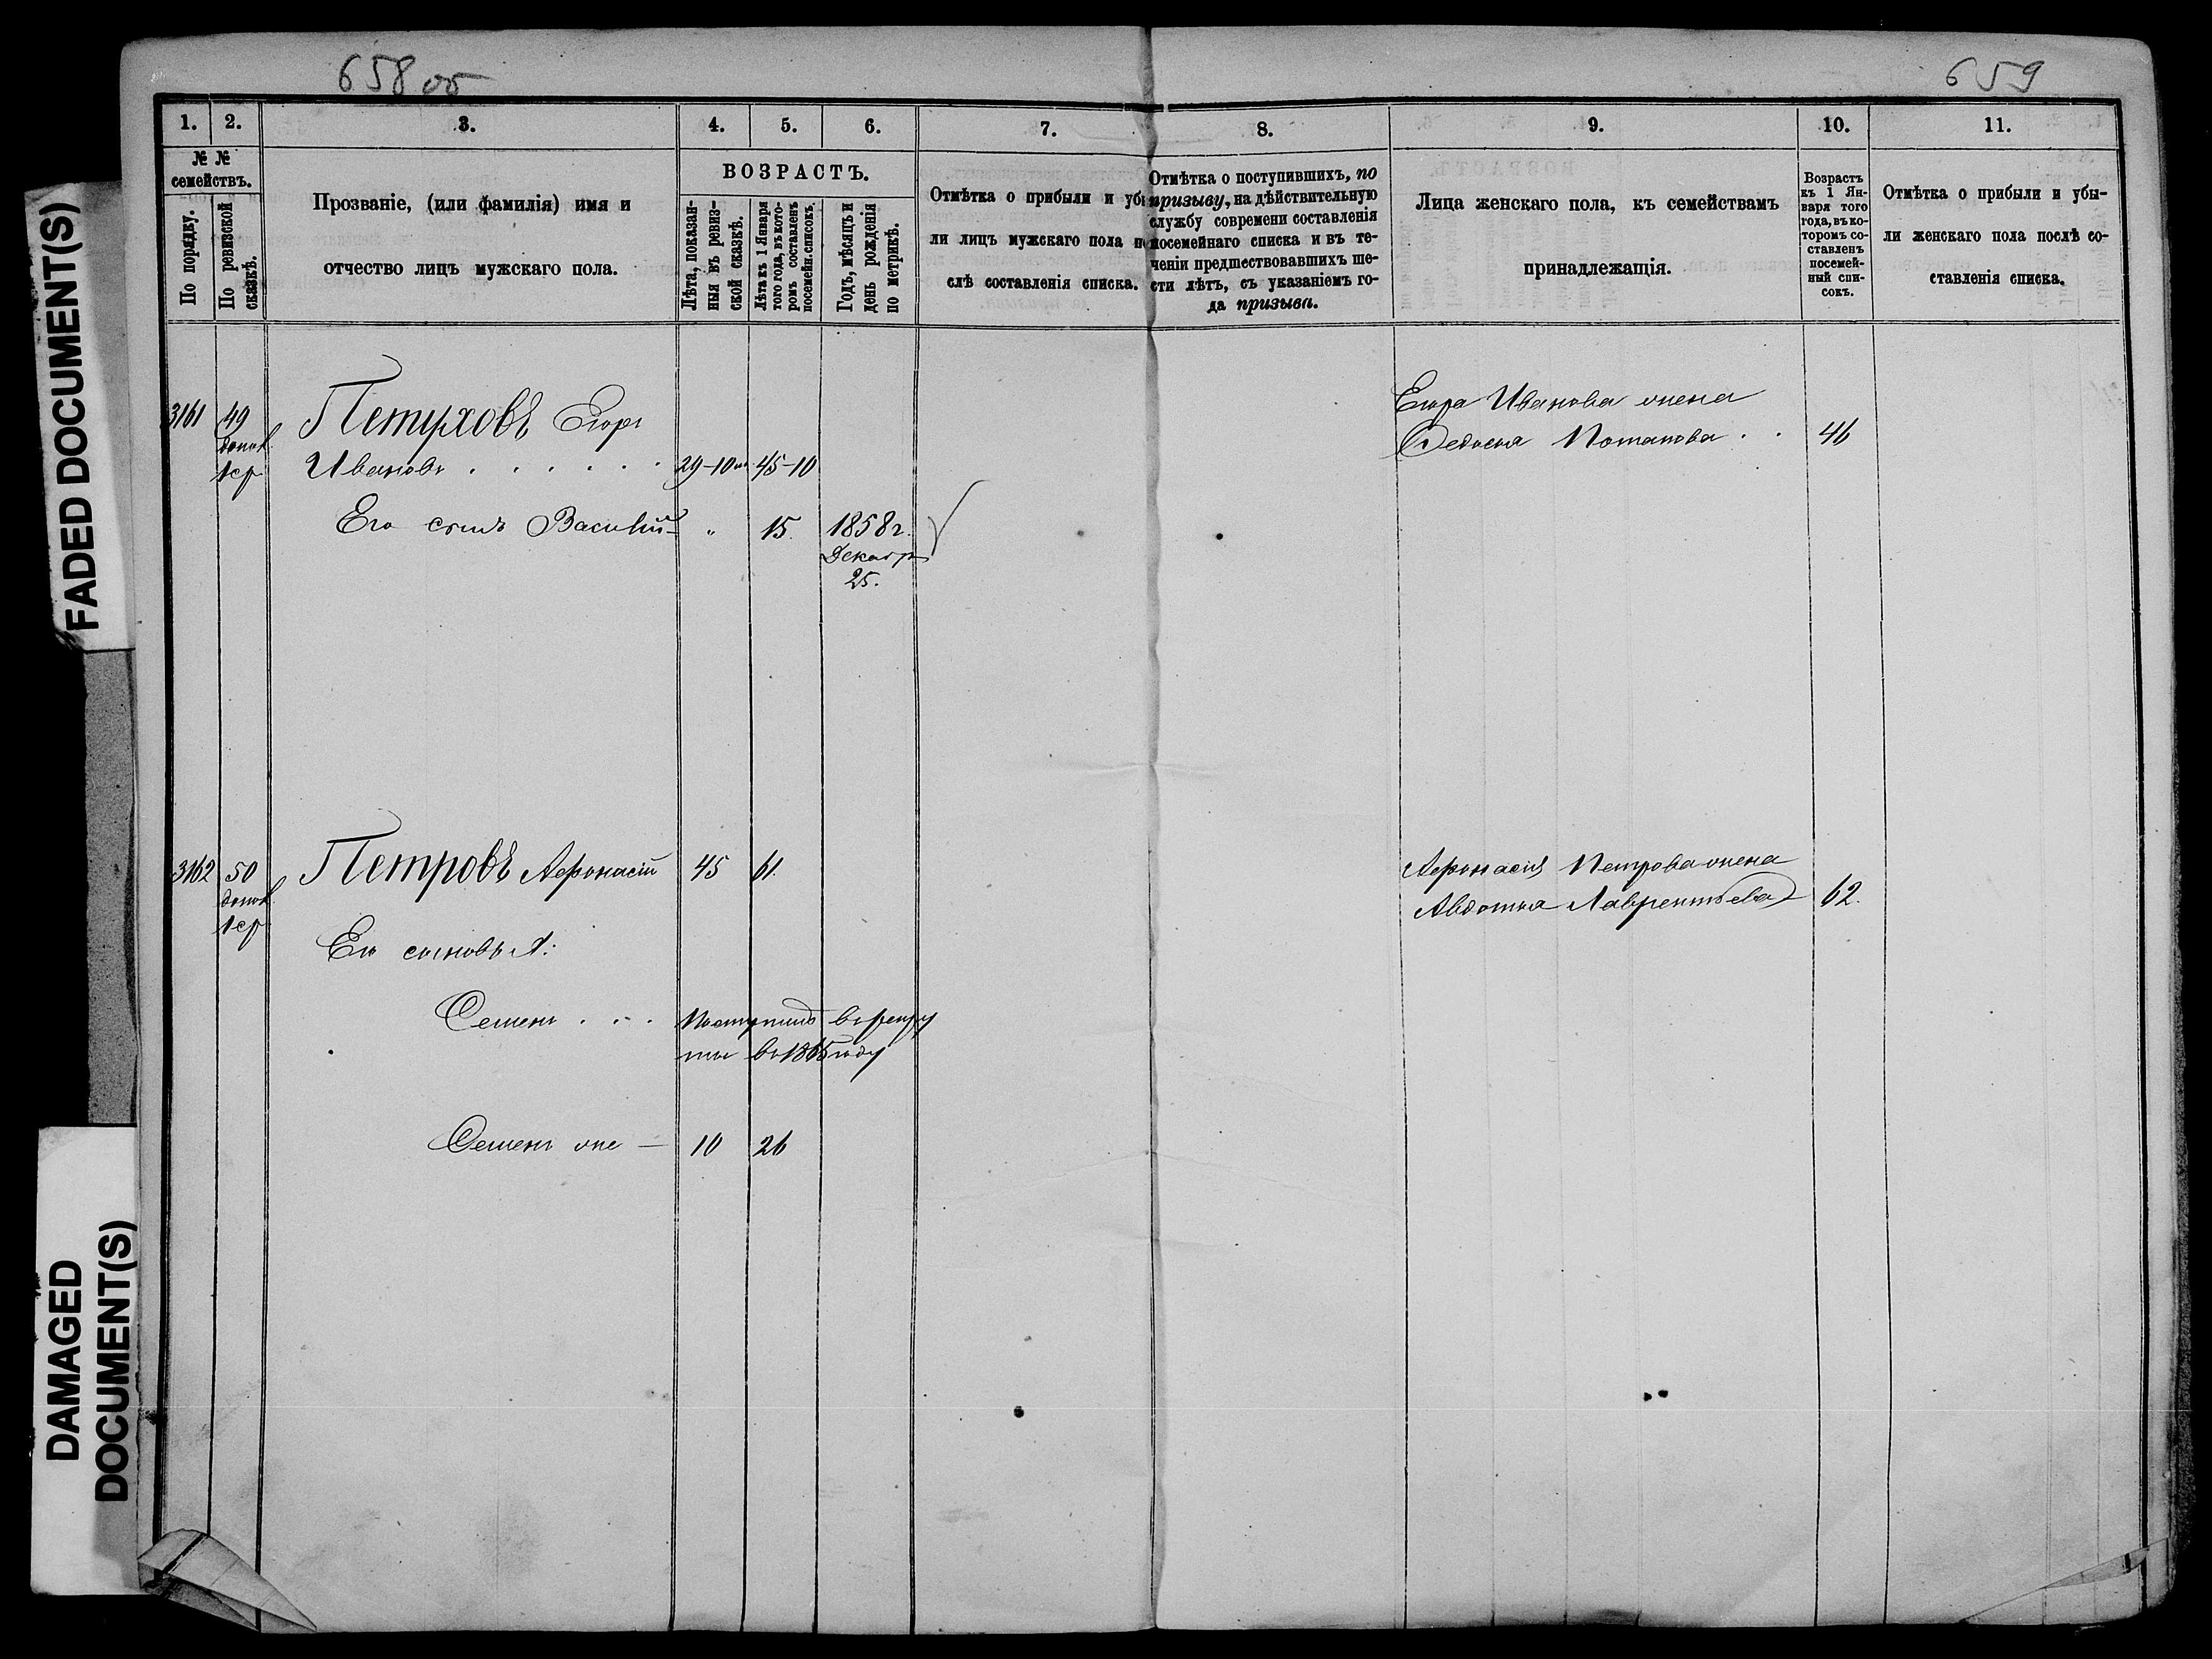 FADED DOCUMENT(S)
DAMAGED
DOCUMENT(S)
658 об
659
1.
2.
3.
4.
5.
6.
7.
8.
9.
10.
11.
№ №
семействъ.
По порядку.
По ревизской
сказкѣ.
Прозваніе, (или фамилія) имя и
отчество лицъ мужскаго пола.
ВОЗРАСТЪ.
Лѣта, показан-
ныя въ ревиз-
ской сказкѣ.
Лѣта къ 1 Января
того года, въ кото-
ромъ составленъ
посемейн. списокъ.
Годъ, мѣсяцъ и
день рожденія
по метрикѣ.
Отмѣтка о прибыли и убы
ли лицъ мужскаго пола по
слѣ составленія списка.
Отмѣтка о поступившихъ, по
призыву, на дѣйствительную
службу современи составленія
посемейнаго списка и въ те-
ченіи предшествовавшихъ ше-
сти лѣтъ, съ указаніемъ го-
да призыва.
Лица женскаго пола, къ семействамъ
принадлежащія.
Возрастъ
къ 1 Ян-
варя того
года, въ ко-
торомъ со-
ставленъ
посемей-
ный спи-
сокъ.
Отмѣтка о прибыли и убы-
ли женскаго пола послѣ со-
ставленія списка.
3161 49 Пѣтуховъ Егоръ
допол.
1 ср Ивановъ . . . . . . 29-10 м 45-10
Егора Иванова жена
Федосья Потапова . . 46
Его сынъ Василій - „ 15. 1858 г.
Декабр
25.
3162 50 Петровъ Афонасій 45 61.
допол.
1 ср
Афонасія Петрова жена
Авдотья Лаврентьева 62.
Его сыновья:
Семенъ . . . Поступилъ въ рекру
ты въ 1865 году
Семенъ же — 10 26